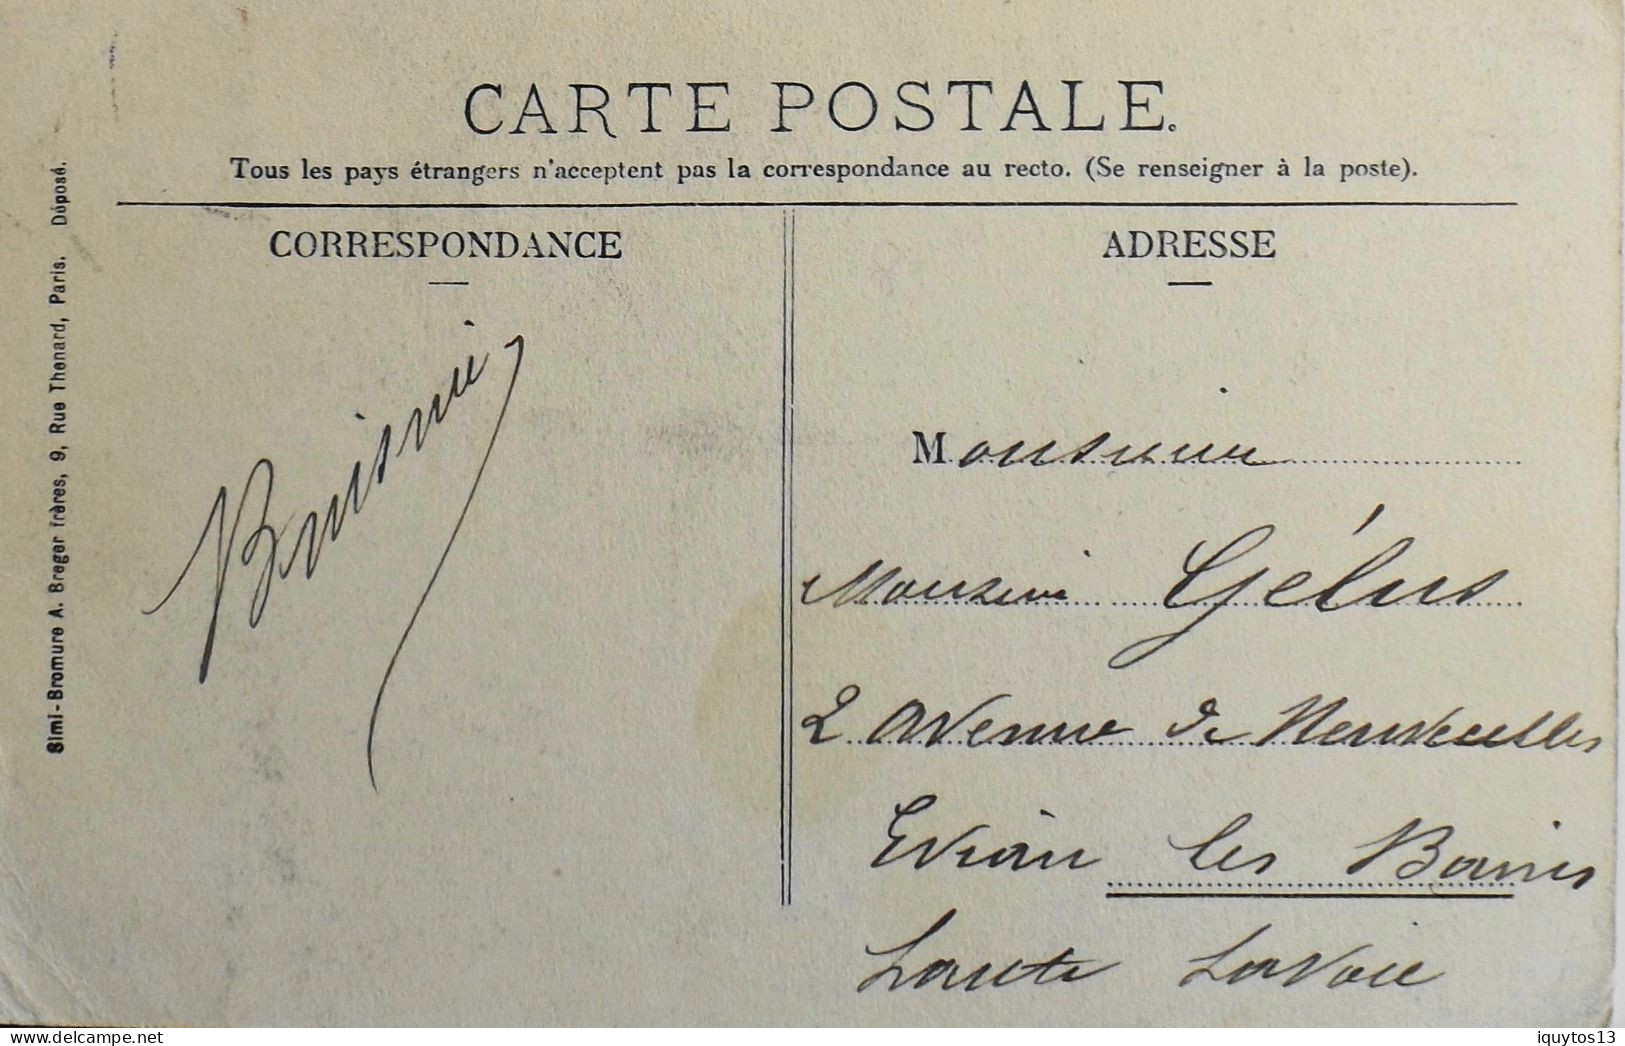 CARTE POSTALE.
Tous les pays étrangers n'acceptent pas la correspondance au recto. (Se renseigner à la poste).
CORRESPONDANCE
ADRESSE
Simi-Bromure A. Breger frères, 9, Rue Thenard, Paris. Déposé.
Monsieur
Monsieur Gélus
2 Avenue de Neuvecelles
Evian les Bains
Haute Savoie
www.delcampe.net
iquytos13